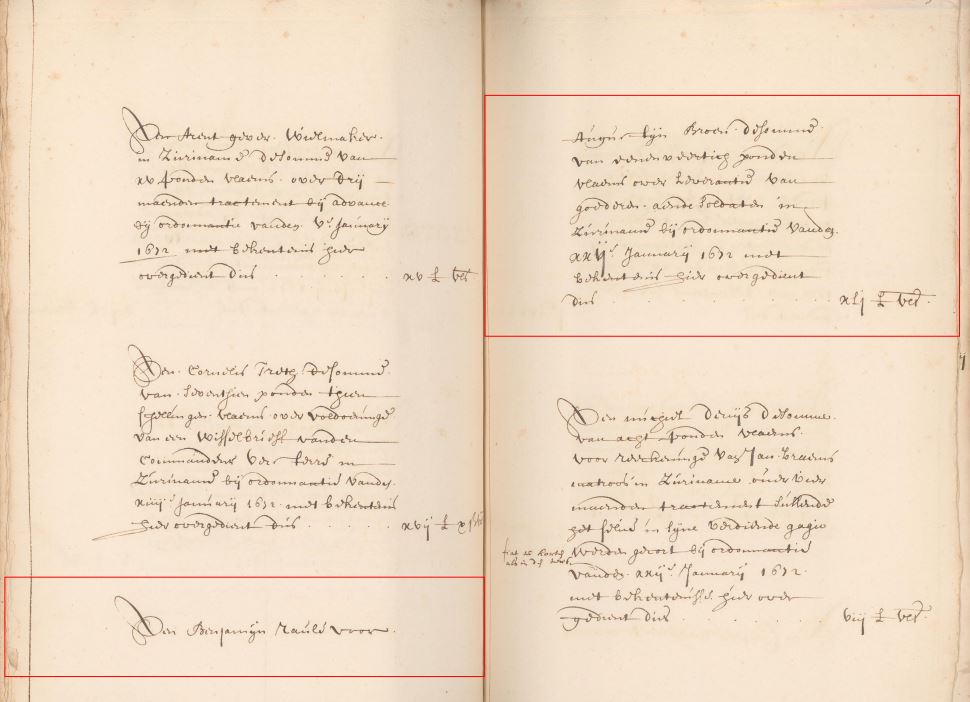 Den Arent gever. Wielmaker.
in Zuriname desomme van
xv ponden vlaems. over drij
maenden tractement bij advance
bij ordonnantie vanden. Ve. January
1672 met bekentenis hier
overgedient dus . . . . . . xv £ vls
Den. Cornelis desomme.
van. Seventhien ponden thien
schellingen. vlaems. over voldoeninge
van een Wisselbrieff vanden
Commandeur in
Zuriname bij ordonnantie vanden.
xiiije January 1672. met bekentenis
hier overgedient dus . . . . . xvij £ x
Den Benjamijn Raulé voor.
Augustijn Broen. desomme
van eenenveertich ponden
vlaems over Leverantie van
goederen. aende Soldaten in
Zuriname bij ordonnantie vanden.
xxije January 1672 met
bekentenis hier overgedient
dus . . . . . . xlj £ vls.
Den michiel denijs desomme.
van acht ponden vlaems.
voor reeckeninge van Jan
matroos in Zuriname. over vier
maenden tractement Sullende
het selve in sijne verdiende gagie
werden gecort bij ordonnantie
vanden. xxije January 1672.
met bekentenisse. hier over
gedient dus . . . . . . viij £ vls.